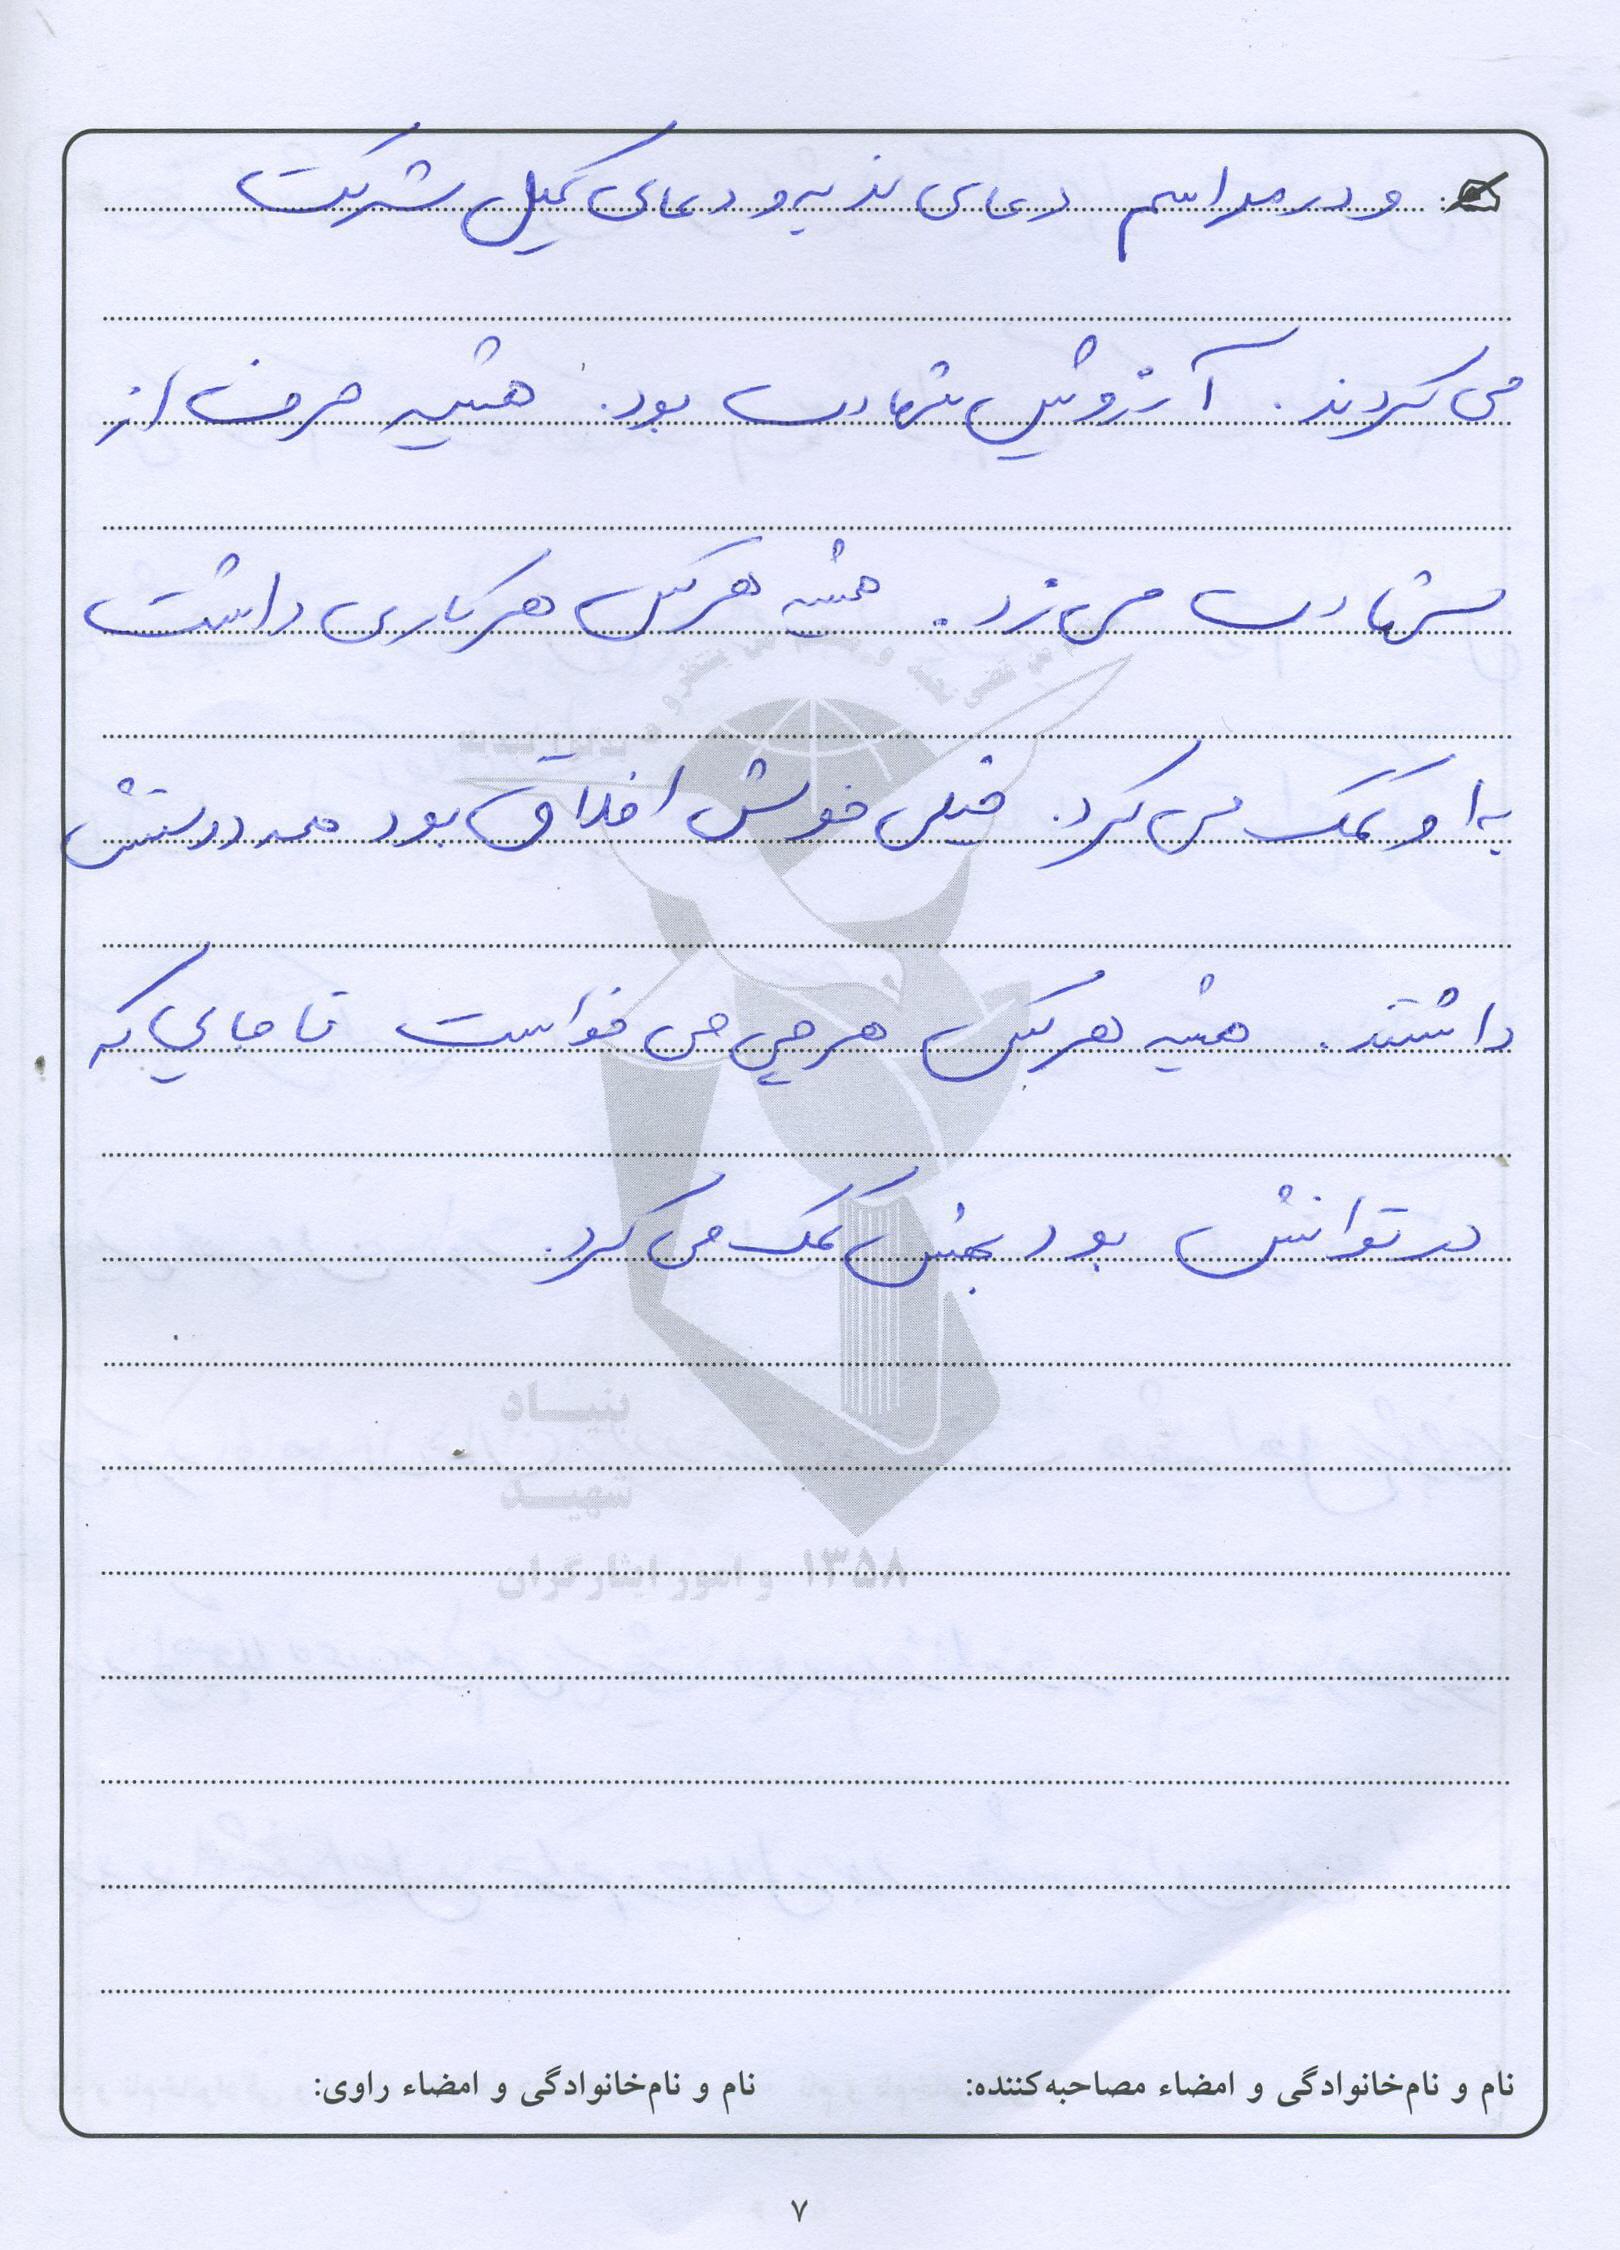 و در مراسم دعای ندبه و دعای کمیل شرکت
می کردند. آرزویش شهادت بود. همیشه حرف از
شهادت می زد. همیشه هرکس هر کاری داشت
به او کمک می کرد. خیلی خوش اخلاق بود همه دوستش
داشتند. همیشه هرکس هر چی می خواست تا جایی که
در توانش بود بهش کمک می کرد.
بنیاد
شهید
و امور ایثارگران ۱۳۵۸
نام و نام‌خانوادگی و امضاء مصاحبه‌کننده: نام و نام‌خانوادگی و امضاء راوی:
۷